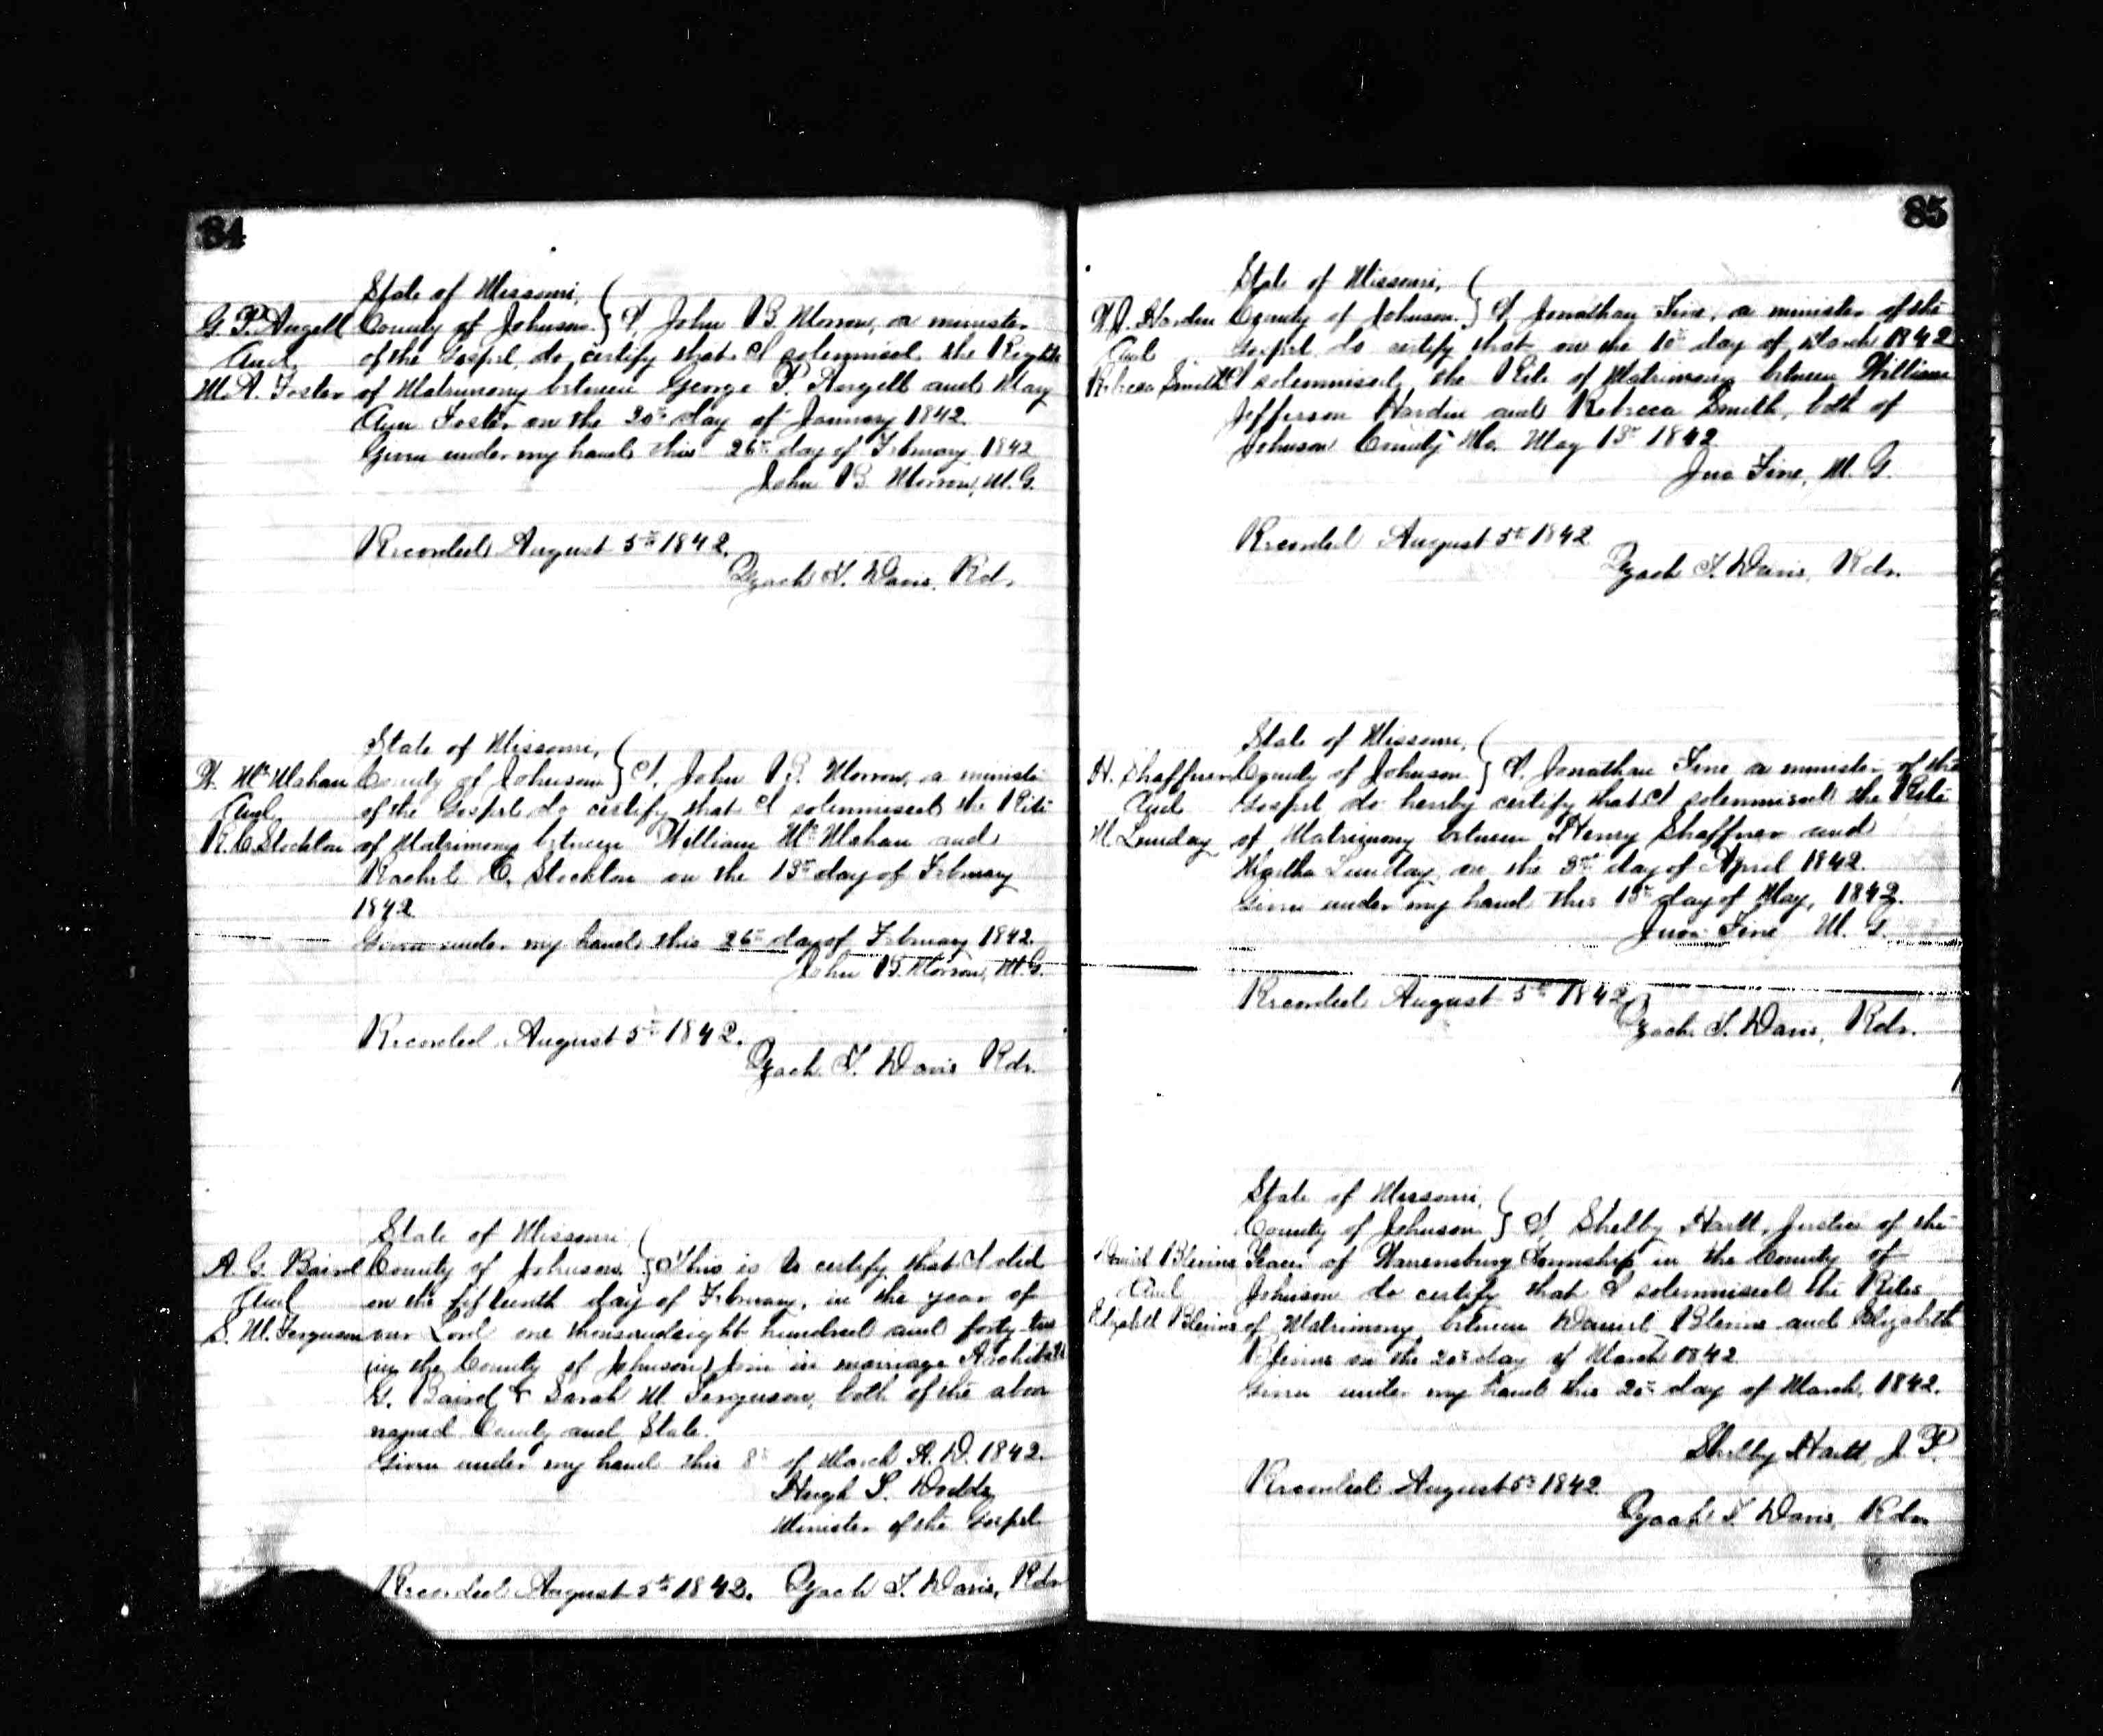 84
State of Missouri,
G. P. Angell County of Johnson. } I, John B. Morrow, a minister
And of the Gospel, do certify that I solemnised the Rights
M. A. Foster of Matrimony between George P. Angell and Mary
Ann Foster on the 20th day of January 1842.
Given under my hand this 26th day of February 1842
John B. Morrow, M. G.
Recorded August 5th 1842.
Zach T. Davis, Rdr.
State of Missouri,
W. McMahan County of Johnson } I, John B. Morrow, a minister
And of the Gospel do certify that I solemnised the Rite
R. C. Stockton of Matrimony between William McMahan and
Rachel C. Stockton on the 13th day of February
1842
Given under my hand this 26th day of February 1842.
John B. Morrow, M. G.
Recorded August 5th 1842.
Zach T. Davis Rdr.
State of Missouri
A. G. Baird County of Johnson } This is to certify that I did
And on the fifteenth day of February, in the year of
S. M. Ferguson our Lord one thousand eight hundred and forty two
(in the County of Johnson) join in marriage
G. Baird & Sarah M Ferguson, both of the above
named County and State.
Given under my hand this 8th of March A. D. 1842.
Hugh S. Dodds
Minister of the Gospel
Recorded August 5th 1842. Zach T. Davis, Rdr
85
State of Missouri,
W. J. Hardin County of Johnson. } I, Jonathan Fine, a minister of the
And Gospel do certify that on the 10th day of March 1842
Rebecca Smith I solemnised the Rite of Matrimony between William
Jefferson Hardin and Rebecca Smith, both of
Johnson County Mo. May 13th 1842
Jno Fine, M. G.
Recorded August 5th 1842
Zach T. Davis, Rdr.
State of Missouri,
H. Shaffner County of Johnson } I, Jonathan Fine a minister of the
And Gospel do hereby certify that I solemnised the Rite
M. Lunday of Matrimony between Henry Shaffner and
Martha Lunday on the 3rd day of April 1842.
Given under my hand this 13th day of May, 1842.
Fine M. G.
Recorded August 5th 1842
Zach. T. Davis, Rdr.
State of Missouri,
County of Johnson } I, Shelby Hartt, Justice of the
Daniel Blevins Peace of Warrensburg Township in the County of
And Johnson do certify that I solemnised the Rites
Elizabeth Blevins of Matrimony between Daniel Blevins and Elizabeth
Blevins on the 20th day of March 1842
Given under my hand this 20th day of March, 1842.
Shelby Hartt, J. P.
Recorded August 5th 1842
Zach T. Davis, Rdr